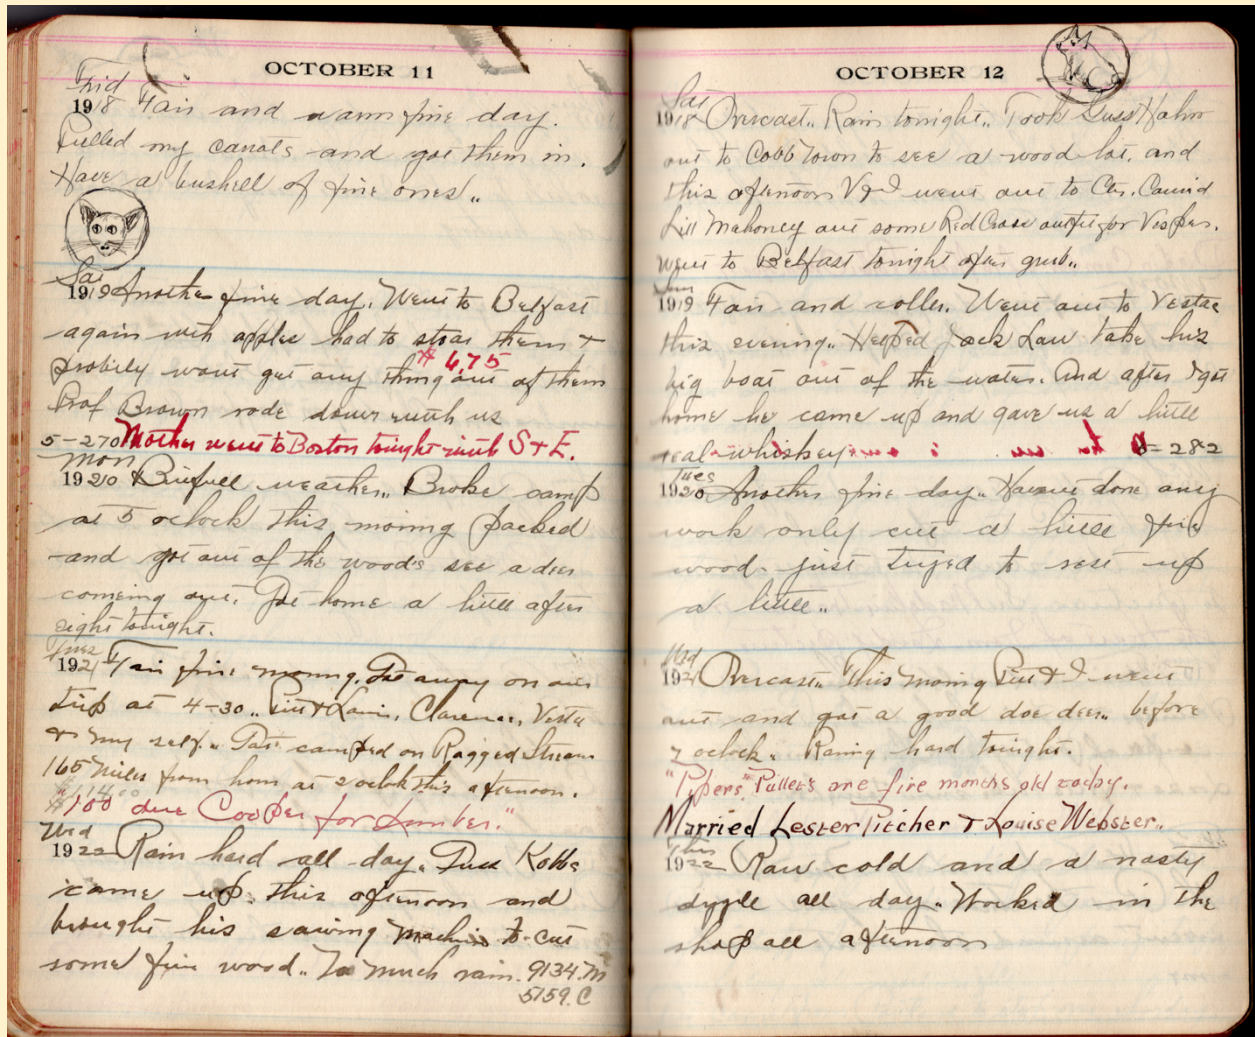 OCTOBER 11
Frid
1918 Fair and warm fine day.
Pulled my carrots and got them in.
Have a bushell of fine ones..
Sat
1919 Another fine day. Went to Belfast
again with apples had to stoar them &
probily wont get any thing out of them
$ 4.75
Prof Brown rode down with us
5-270 Mother went to Boston tonight with S & E.
Mon
1920 Butifull weather.. Broke camp
at 5 oclock this moring packed
and got out of the woods see a deer
comeing out. Got home a little after
eight tonight.
Tues
1921 Fair fine moring. Got away on our
trip at 4-30.. Clarence, Vesta
& my self.. camped on Ragged Stream
165 miles from hom at 2 oclok this afternoon.
"$100 due Cooper for Lumber."
Wed
1922 Rain hard all day. Kobbe
came up this afternoon and
brought his sawing machine to cut
some fire wood.. To much rain. 9134.M
5159.C
OCTOBER 12
Sat
1918 Overcast.. Rain tonight.. Took Guss Hahn
out to Cobbtown to see a wood lot. and
this afternoon V & I went out to Ctr. Carried
Lill Mahoney out some Red Cross outfit for Vesper.
Went to Belfast tonight after grub..
Sun
1919 Fair and coller. Went out to Vestas
this evening.. Helped Jack Law take his
big boat out of the water. And after I got
home he came up and gave us a little
real whiskey
8-282
Tues
1920 Another fine day.. Havent done any
work only cut a little fire
wood. just tryed to rest up
a little..
Wed
1921 Overcast.. This moring & I went
out and got a good doe deer.. before
7 oclock. Raning hard tonight.
"Pipers" Pullets are five months old today.
Married Lester Pitcher & Louise Webster..
Thurs
1922 Raw cold and a nasty
dyzzle all day. Worked in the
shop all afternoon